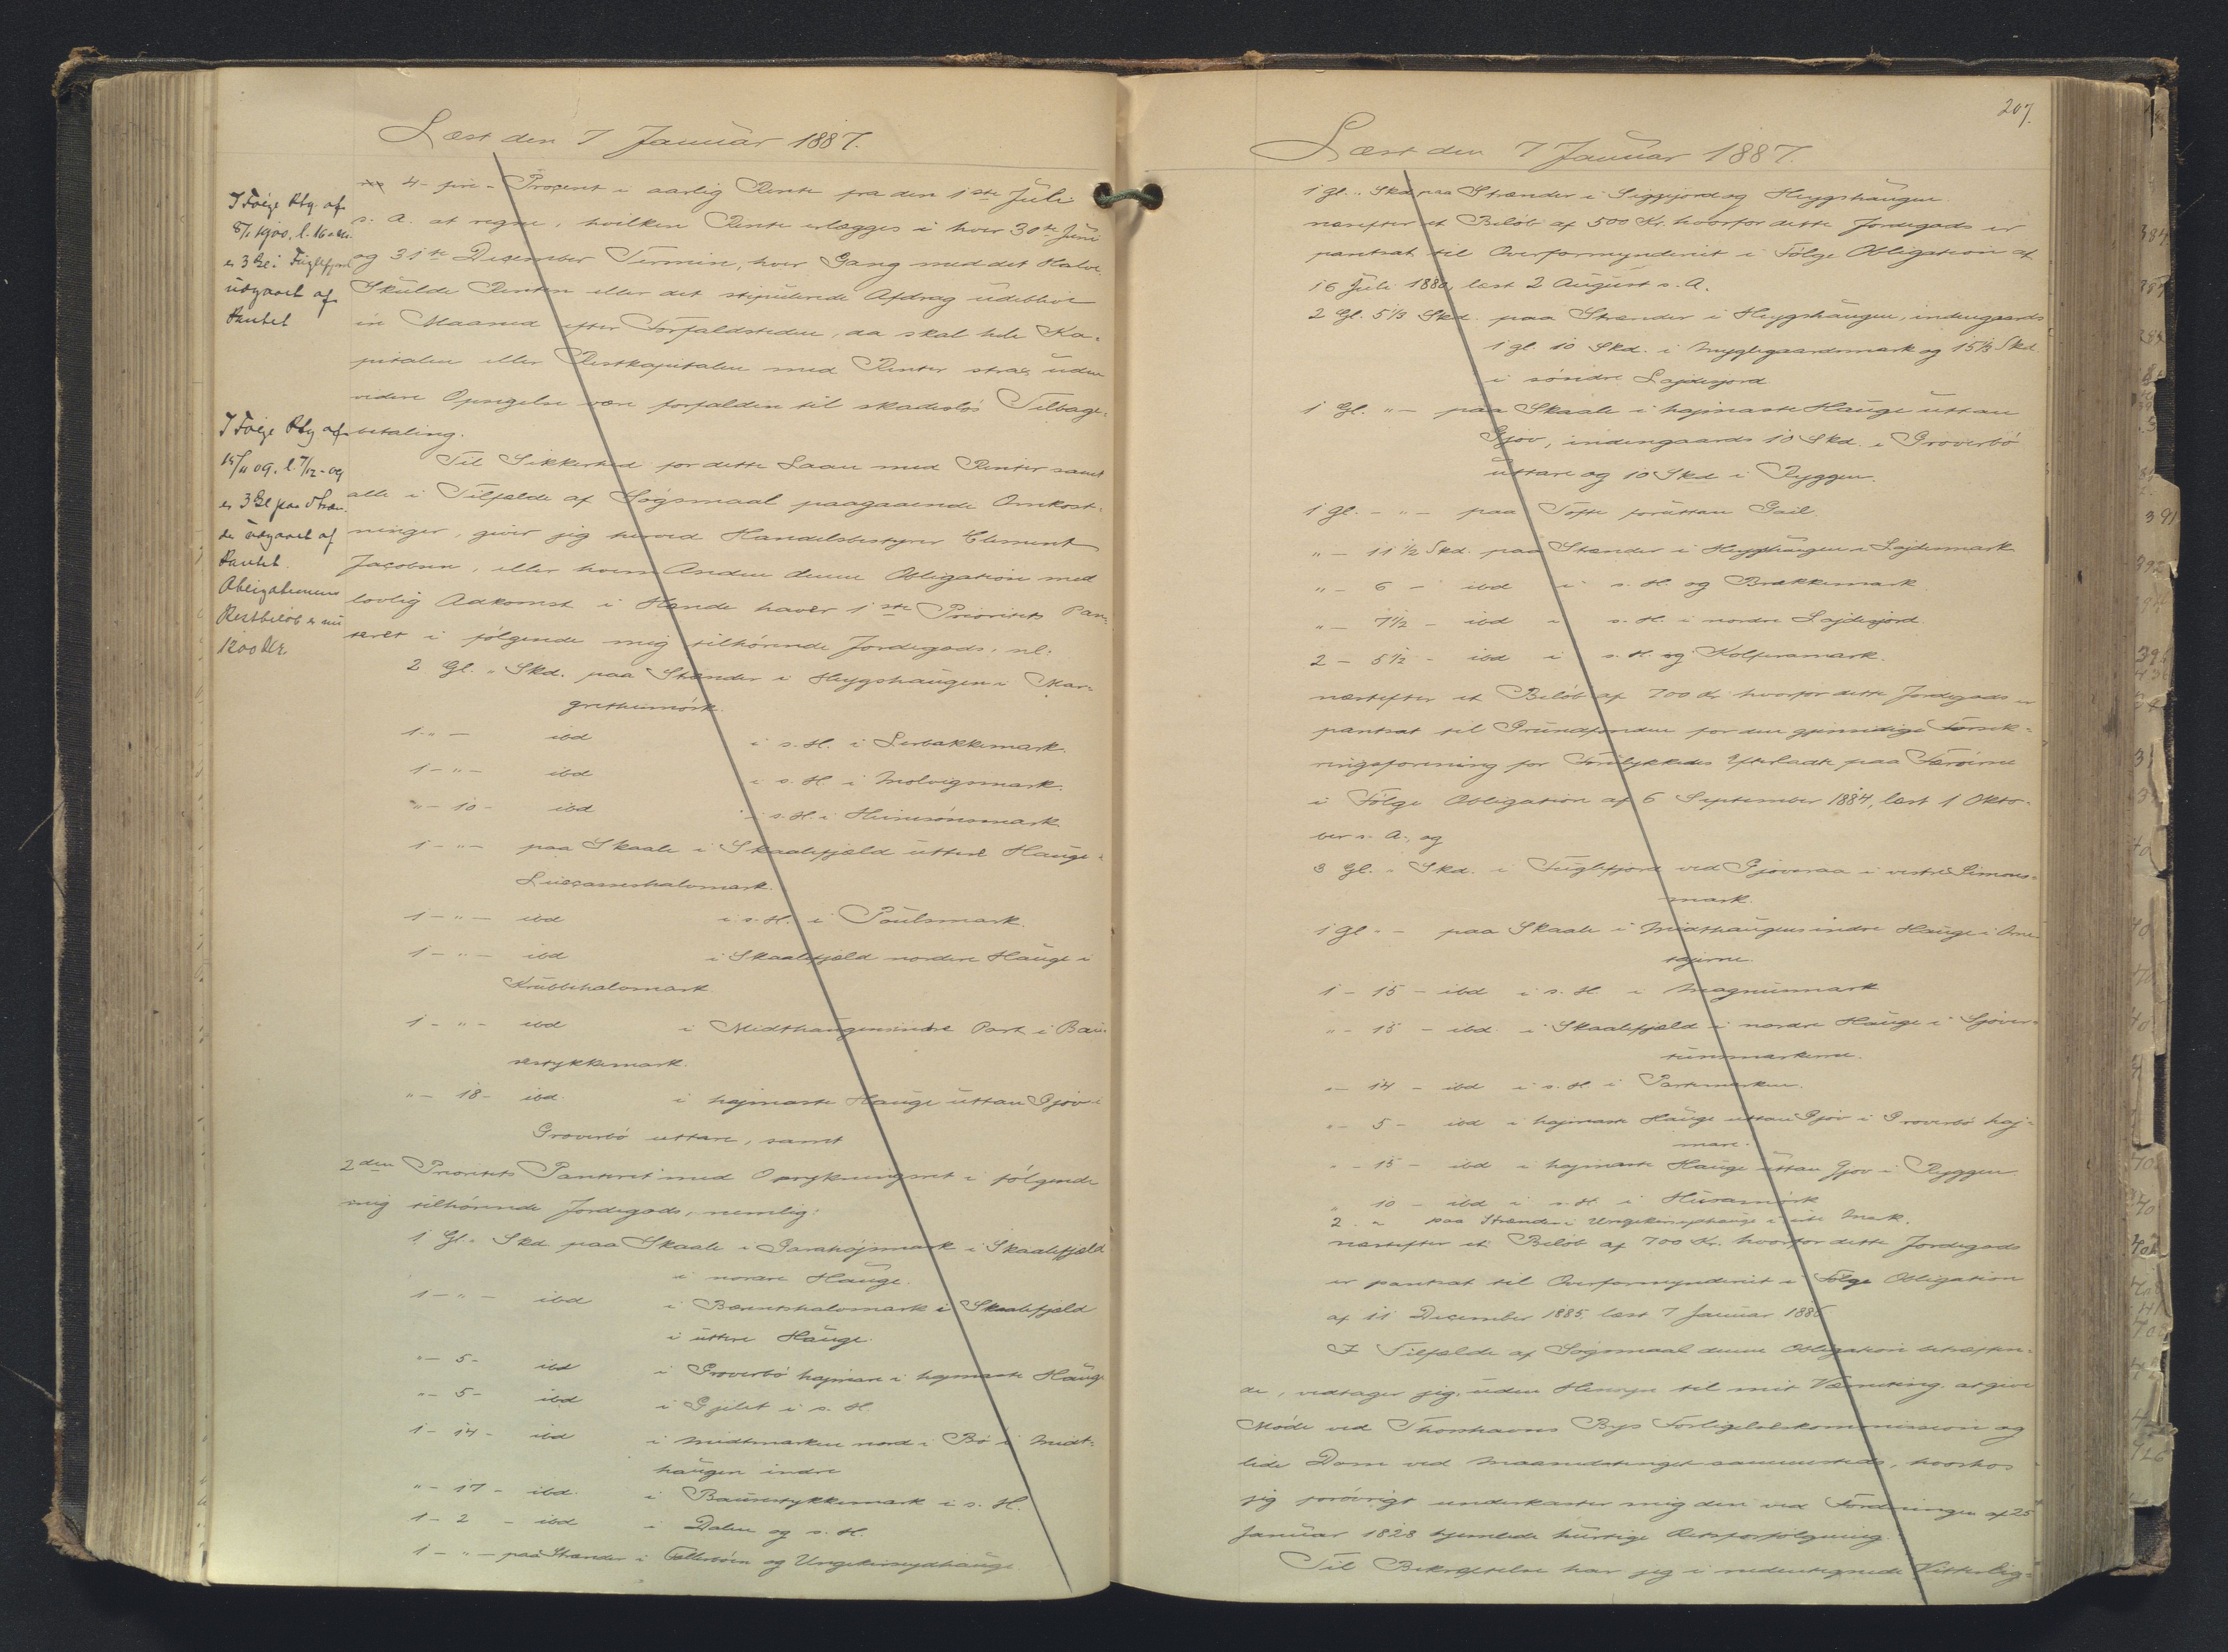 Læst den 7 Januar 1887.
I Følge Ptg. af
8/1 1900, l. 16 s. M.
er 3 Gl i Fuglefjord
udgaaet af
Pantet
I Følge Ptg af
15/11 09. l. 7/12-09
er 3 Gl paa Stræn-
de udgaaet af
Pantet.
Obligationens
Restbeløb er nu
1200 Kr.
4 - fire - Procent i aarlig Rente fra den 1ste Juli
s. A. at regne, hvilken Rente erlægges i hver 30te Juni
og 31te December Termin, hver Gang med det Halve.
Skulde Renten eller det stipulerede Afdrag udeblive
en Maaned efter Forfaldstiden, da skal hele Ka-
pitalen eller Restkapitalen med Renter strax uden
videre Opsigelse være forfalden til skadesløs Tilbage-
betaling.
Til Sikkerhed for dette Laan med Renter samt
alle i Tilfælde af Søgsmaal paagaaende Omkost-
ninger, giver jig herved Handelsbestyrer Clement
Jacobsen, eller hvem Anden denne Obligation med
lovlig Adkomst i Hænde haver 1ste Prioritets Pan-
teret i følgende mig tilhørende Jordegods, nl:
2 Gl. " Skd. paa Strænder i Heygshaugen i Mar-
grethemørk.
1 - " - ibd i s. H. i Lerbakkemark.
1 - " - ibd i s. H. i Molvigsmark.
" - 10 - ibd i s. H. i
1 - " - paa Skaale i Skaalefjæld uttere Hauge i
1 - " - ibd i s. H. i Poulsmark.
1 - " - ibd i Skaalefjæld nordere Hauge i
Krubbehalvmark
1 - " - ibd i Midthaugensindre Part i Bau-
restykkemark.
" - 18 - ibd i hajmaste Hauge uttan Gjov i
Groverbø uttare, samt
2den Prioritets Panteret med Oprykningsret i følgende
mig tilhørende Jordegods, nemlig:
1 Gl. " Skd paa Skaale i Garahøjsmark i Skaalefjæld
i nordre Hauge.
1 - " - ibd i Bærentshalvmark i Skaalefjæld
i uttere Hauge.
" - 5 - ibd i Groverbø hajmare i hajmaste Hauge
" - 5 - ibd i Gjilet i s. H.
1 - 14 - ibd i Midtmarken nord i Bø i Midt-
haugen indre
" - 17 - ibd. i Baurestykkemark i s. H.
1 - 2 - ibd i Dalen og s. H.
1 - " - paa Strænder i og
207.
Læst den 7 Januar 1887.
1 Gl. " Skd paa Strænder i Siggefjord og Heygshaugen
næstefter et Beløb af 500 Kr. hvorfor dette Jordegods er
pantsat til Overformynderiet i Følge Obligation af
16 Juli 1880, læst 2 August s. A.
2 Gl. 5 1/3 Skd. paa Strænder i Heygshaugen, indengaards
1 gl. 10 Skd. i Myglegaardsmark og 15 1/3 Skd.
i søndre Lajdesjord
1 Gl. " - paa Skaale i hajmaste Hauge uttan
Gjov, indengaards 10 Skd. i Groverbø
uttare og 10 Skd i Ryggen.
1 Gl. - " - paa Tofte foruttan Gail.
" - 11 1/2 Skd. paa Strænder i Heygshaugen i Lajdesmark
" - 6 - ibd i s. H. og Brækkemark
" - 7 1/2 - ibd i s. H. i nordre Lajdesjord
2 - 5 1/2 - ibd i s. H. og Kolferamark.
næstefter et Beløb af 700 Kr. hvorfor dette Jordegods er
pantsat til Grundfonden for den gjensidige Forsik-
ringsforening for Forulykkedes Efterladte paa Færøerne
i Følge Obligation af 6 September 1884, læst 1 Okto-
ber s. A., og
3 Gl. " Skd. i Fuglefjord ved Gjoveraa i vestre Simons-
mark.
1 Gl - - paa Skaale i Midthaugens indre Hauge i
1 - 15 - ibd i s. H i Magnusmark
" - 15 - ibd i Skaalefjæld i nordre Hauge i Gjover-
tunsmarkerne.
" - 14 - ibd i s. H. i Partemarken.
" - 5 - ibd i hajmaste Hauge uttan Gjov i Groverbø haj-
mare.
" - 15 - ibd i hajmaste Hauge uttan Gjov i Ryggen
" 10 - ibd i s. H. i Husamørk
2 " paa Strænder i i Mark.
næstefter et Beløb af 700 Kr. hvorfor dette Jordegods
er pantsat til Overformynderiet i Følge Obligation
af 11 December 1885, læst 7 Januar 1886
I Tilfælde af Søgsmaal denne Obligation betræffen-
de, vedtager jig, uden Hensyn til mit Værneting at give
Møde ved Thorshavns Bys Forligelseskommission og
lide Dom ved Maanedstinget sammesteds, hvorhos
jig forøvrigt underkaster mig den ved Forordningen af 25
Januar 1828 hjemlede hurtige Retsforfølgning.
Til Bekræftelse har jig i nedentegnede Vitterlig-